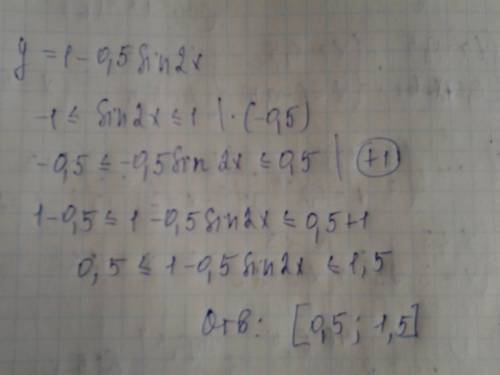 y = 1 - 0,5 sin 2x
-1 ≤ sin 2x ≤ 1 | · (-0,5)
-0,5 ≤ -0,5 sin 2x ≤ 0,5 | +1
1 - 0,5 ≤ 1 - 0,5 sin 2x ≤ 0,5 + 1
0,5 ≤ 1 - 0,5 sin 2x ≤ 1,5
Отв: [0,5 ; 1,5]